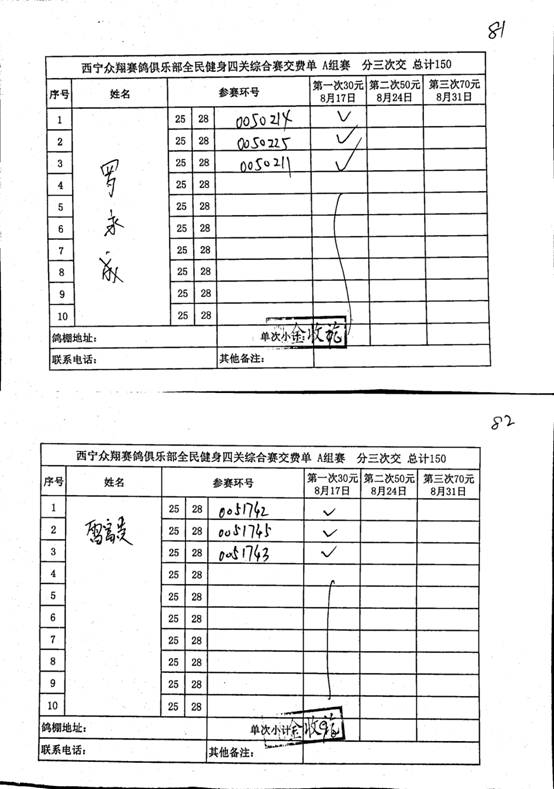 81
西宁众翔赛鸽俱乐部全民健身四关综合赛交费单 A组赛 分三次交 总计150
序号 姓名 参赛环号 第一次30元 8月17日 第二次50元 8月24日 第三次70元 8月31日
1 25 28 0050214 ✓
2 25 28 0050225 ✓
3 25 28 0050211 ✓
罗永成
4 25 28
5 25 28
6 25 28
7 25 28
8 25 28
9 25 28
10 25 28
鸽棚地址: 单次小计:
联系电话: 其他备注:
82
西宁众翔赛鸽俱乐部全民健身四关综合赛交费单 A组赛 分三次交 总计150
序号 姓名 参赛环号 第一次30元 8月17日 第二次50元 8月24日 第三次70元 8月31日
1 25 28 0051742 ✓
2 25 28 0051745 ✓
3 25 28 0051743 ✓
4 25 28
5 25 28
6 25 28
7 25 28
8 25 28
9 25 28
10 25 28
鸽棚地址: 单次小计
联系电话: 其他备注: